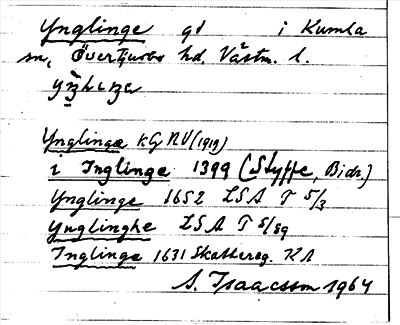 Ynglinge gd i Kumla
sn, Övertjurbo hd. Västm. l.
Ynglinge KG NV (1919)
i Inglinge 1399 (Styffe, Bidr.)
Ynglinge 1652 LSA T 5/3
Ynglinghe LSA T 5/59
Inglinge 1631 Skattereg. KA
S. Isaacsson 1964